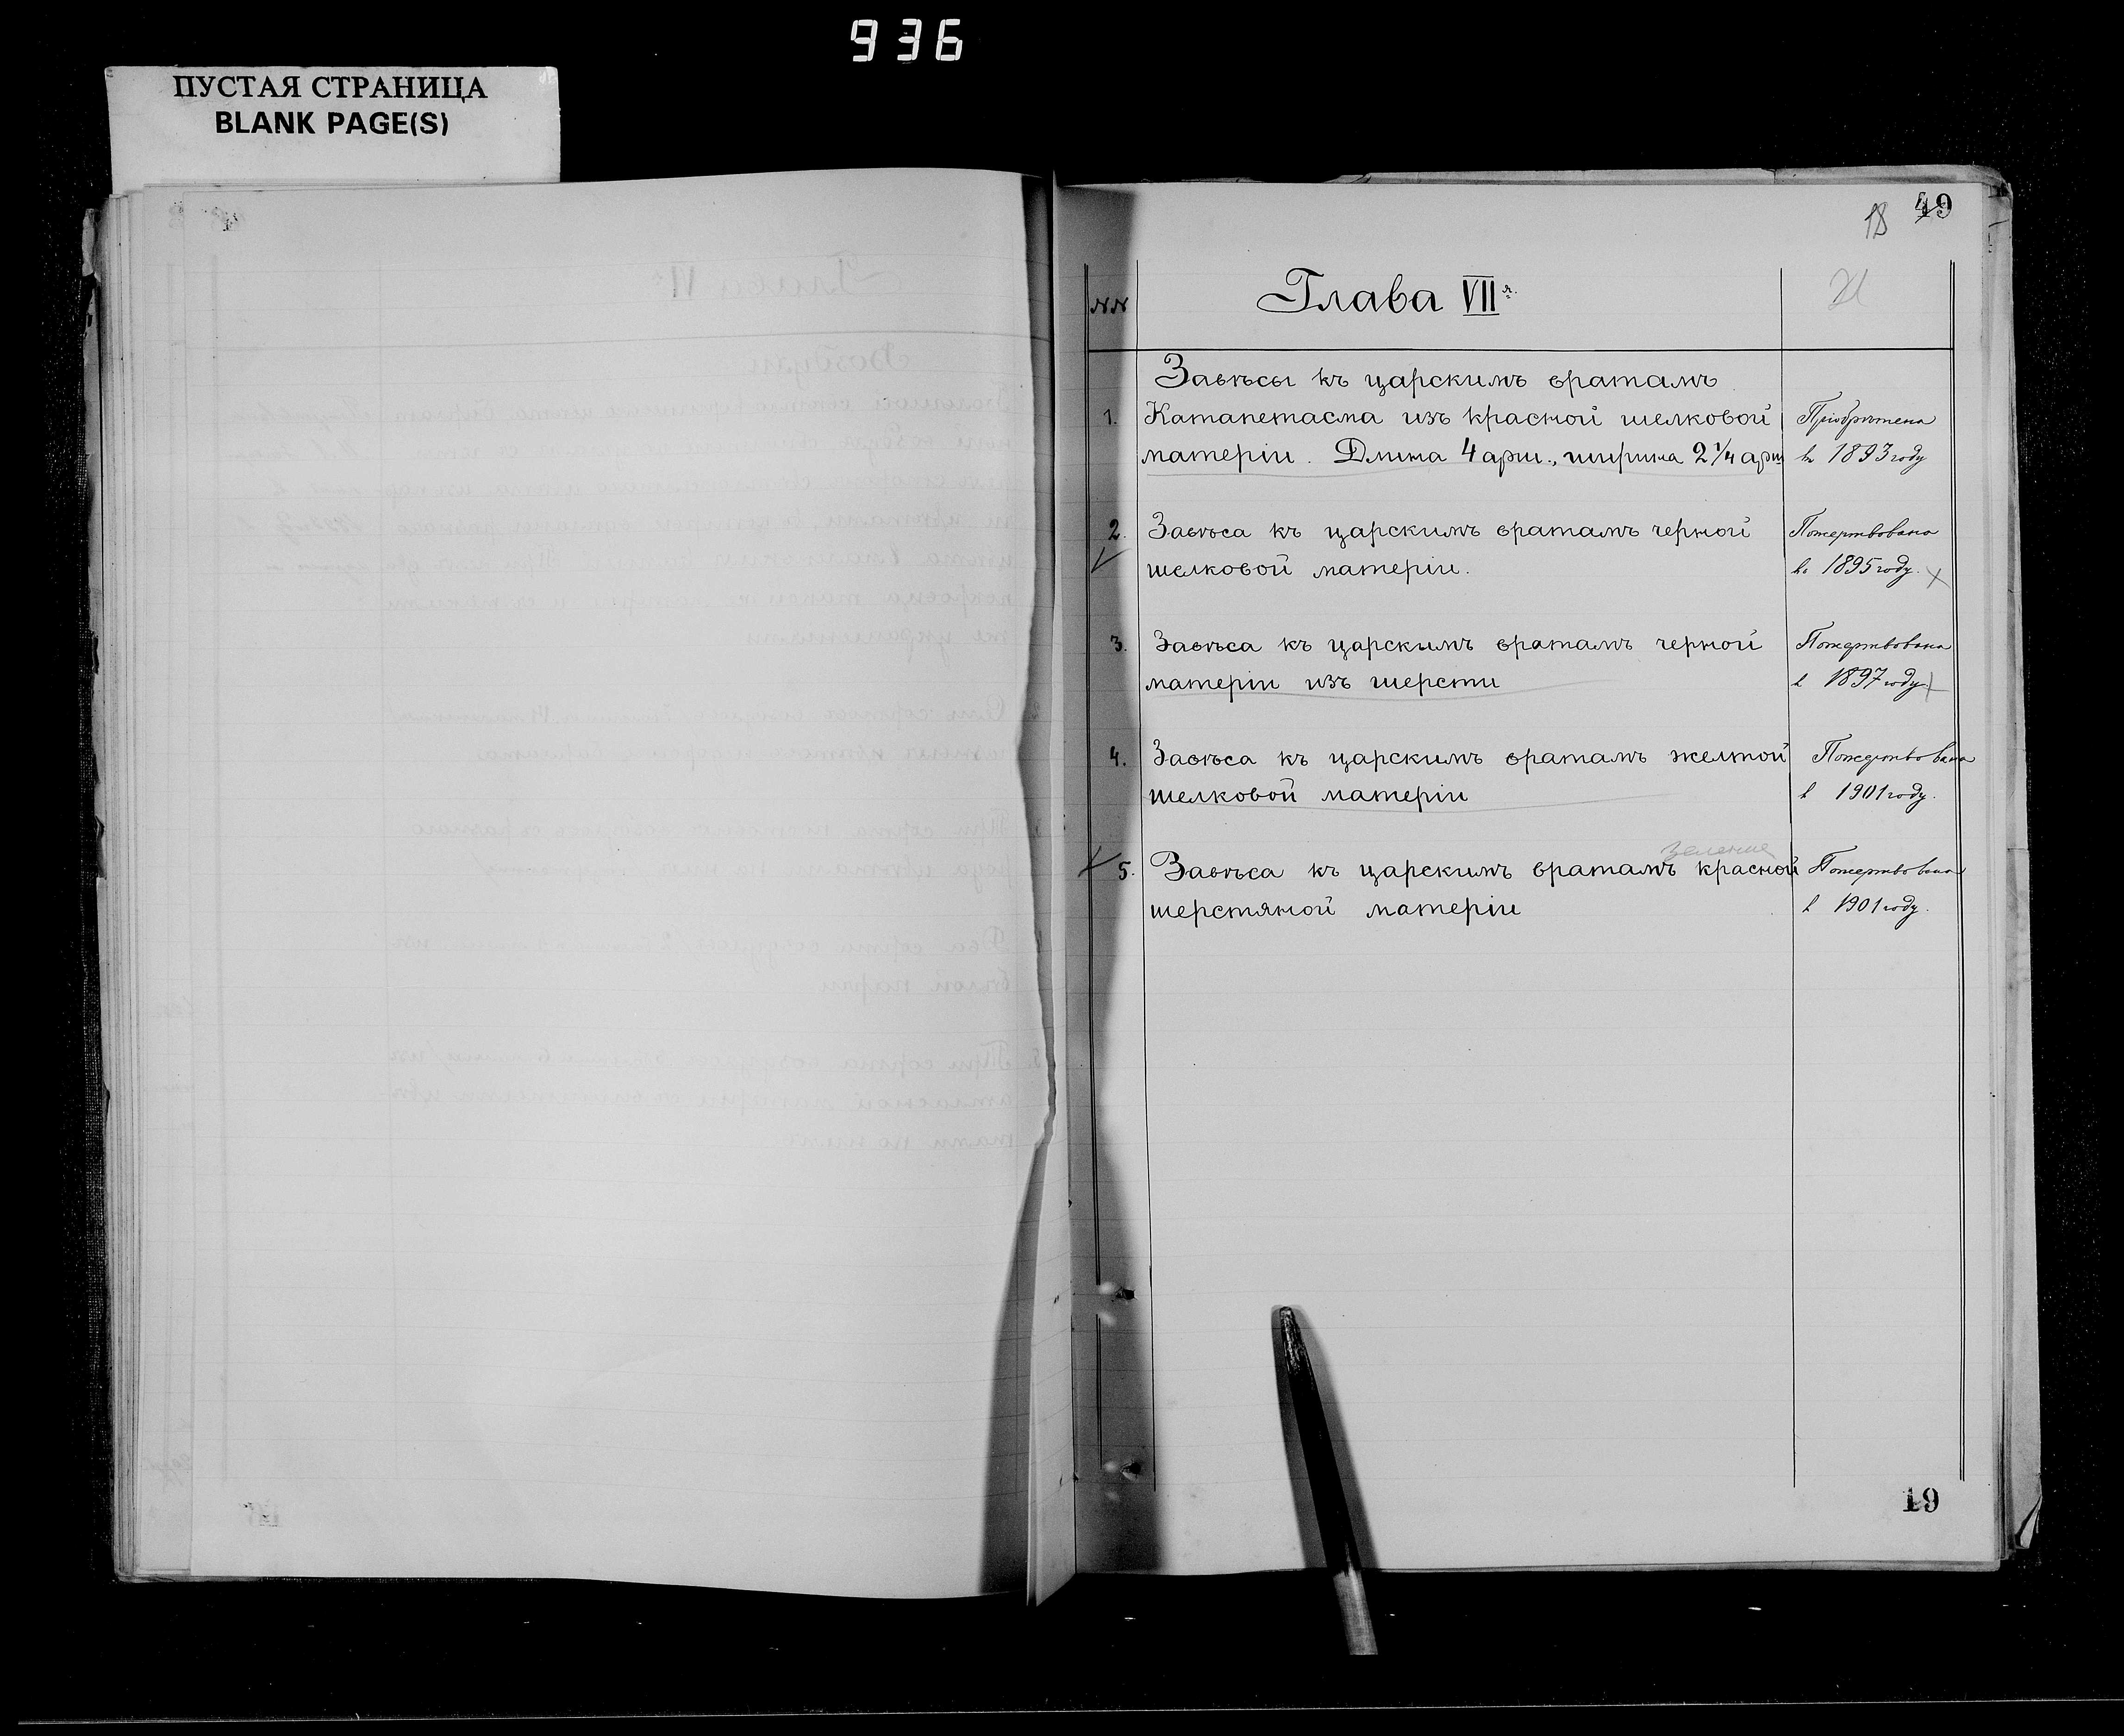 936
ПУСТАЯ СТРАНИЦА
BLANK PAGE(S)
18 49
NN Глава VII я.
Завѣсы къ царскимъ вратамъ
1. Катапетасма изъ красной шелковой Пріобрѣтена
матеріи. Длина 4 арш., ширина 2 1/4 арш въ 1893 году
2. Завѣса къ царскимъ вратамъ черной Пожертвована
шелковой матеріи. въ 1895 году.
3. Завѣса къ царскимъ вратамъ черной Пожертвована
матеріи изъ шерсти в 1897 году
4. Завѣса къ царскимъ вратамъ желтой Пожертвована
шелковой матеріи в 1901 году.
5. Завѣса къ царскимъ вратамъ красной Пожертвована
шерстяной матеріи в 1901 году.
19